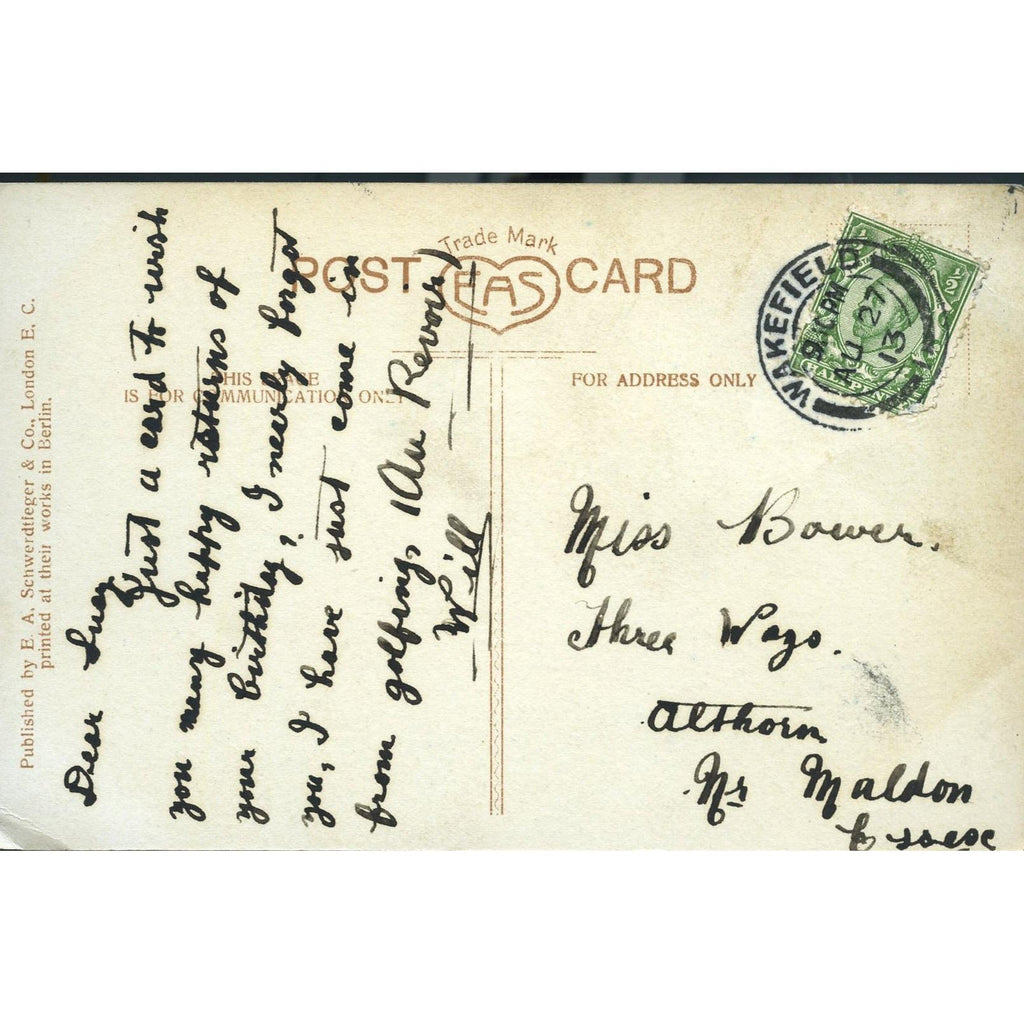 POST CARD
Trade Mark
EAS
THIS SPACE
IS FOR COMMUNICATION ONLY
FOR ADDRESS ONLY
Published by E. A. Schwerdtfeger & Co., London E. C.
printed at their works in Berlin.
Dear Lucy
Just a card to wish
you many happy returns of
your birthday, I nearly forgot
you, I have just come in
from golfing, (Au Revoir)
Will
WAKEFIELD
9.15 PM
AU 27
13
½ ½
HALFPENNY
Miss Bower.
Three Ways.
Althorn
Nr Maldon
Essex